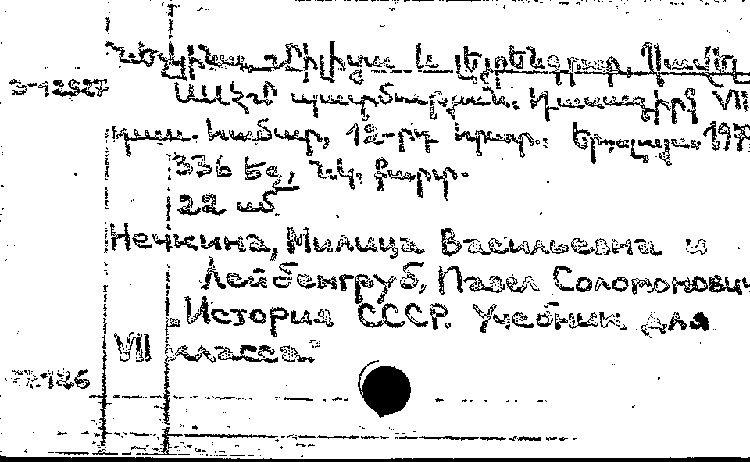 Նեչկինա, Միլիցա և Լեյբենգրուբ, Պավել
З-12827
ՍՍՀՄ պատմություն. Դասագիրք VII
դաս. համար, 12-րդ հրատ. Երևան, 197
336 էջ, նկ. քարտ.
22 սմ
Нечкина, Милица Васильевна и
Лейбенгруб, Павел Соломонович
„История СССР. Учебник для
VII класса."
72186